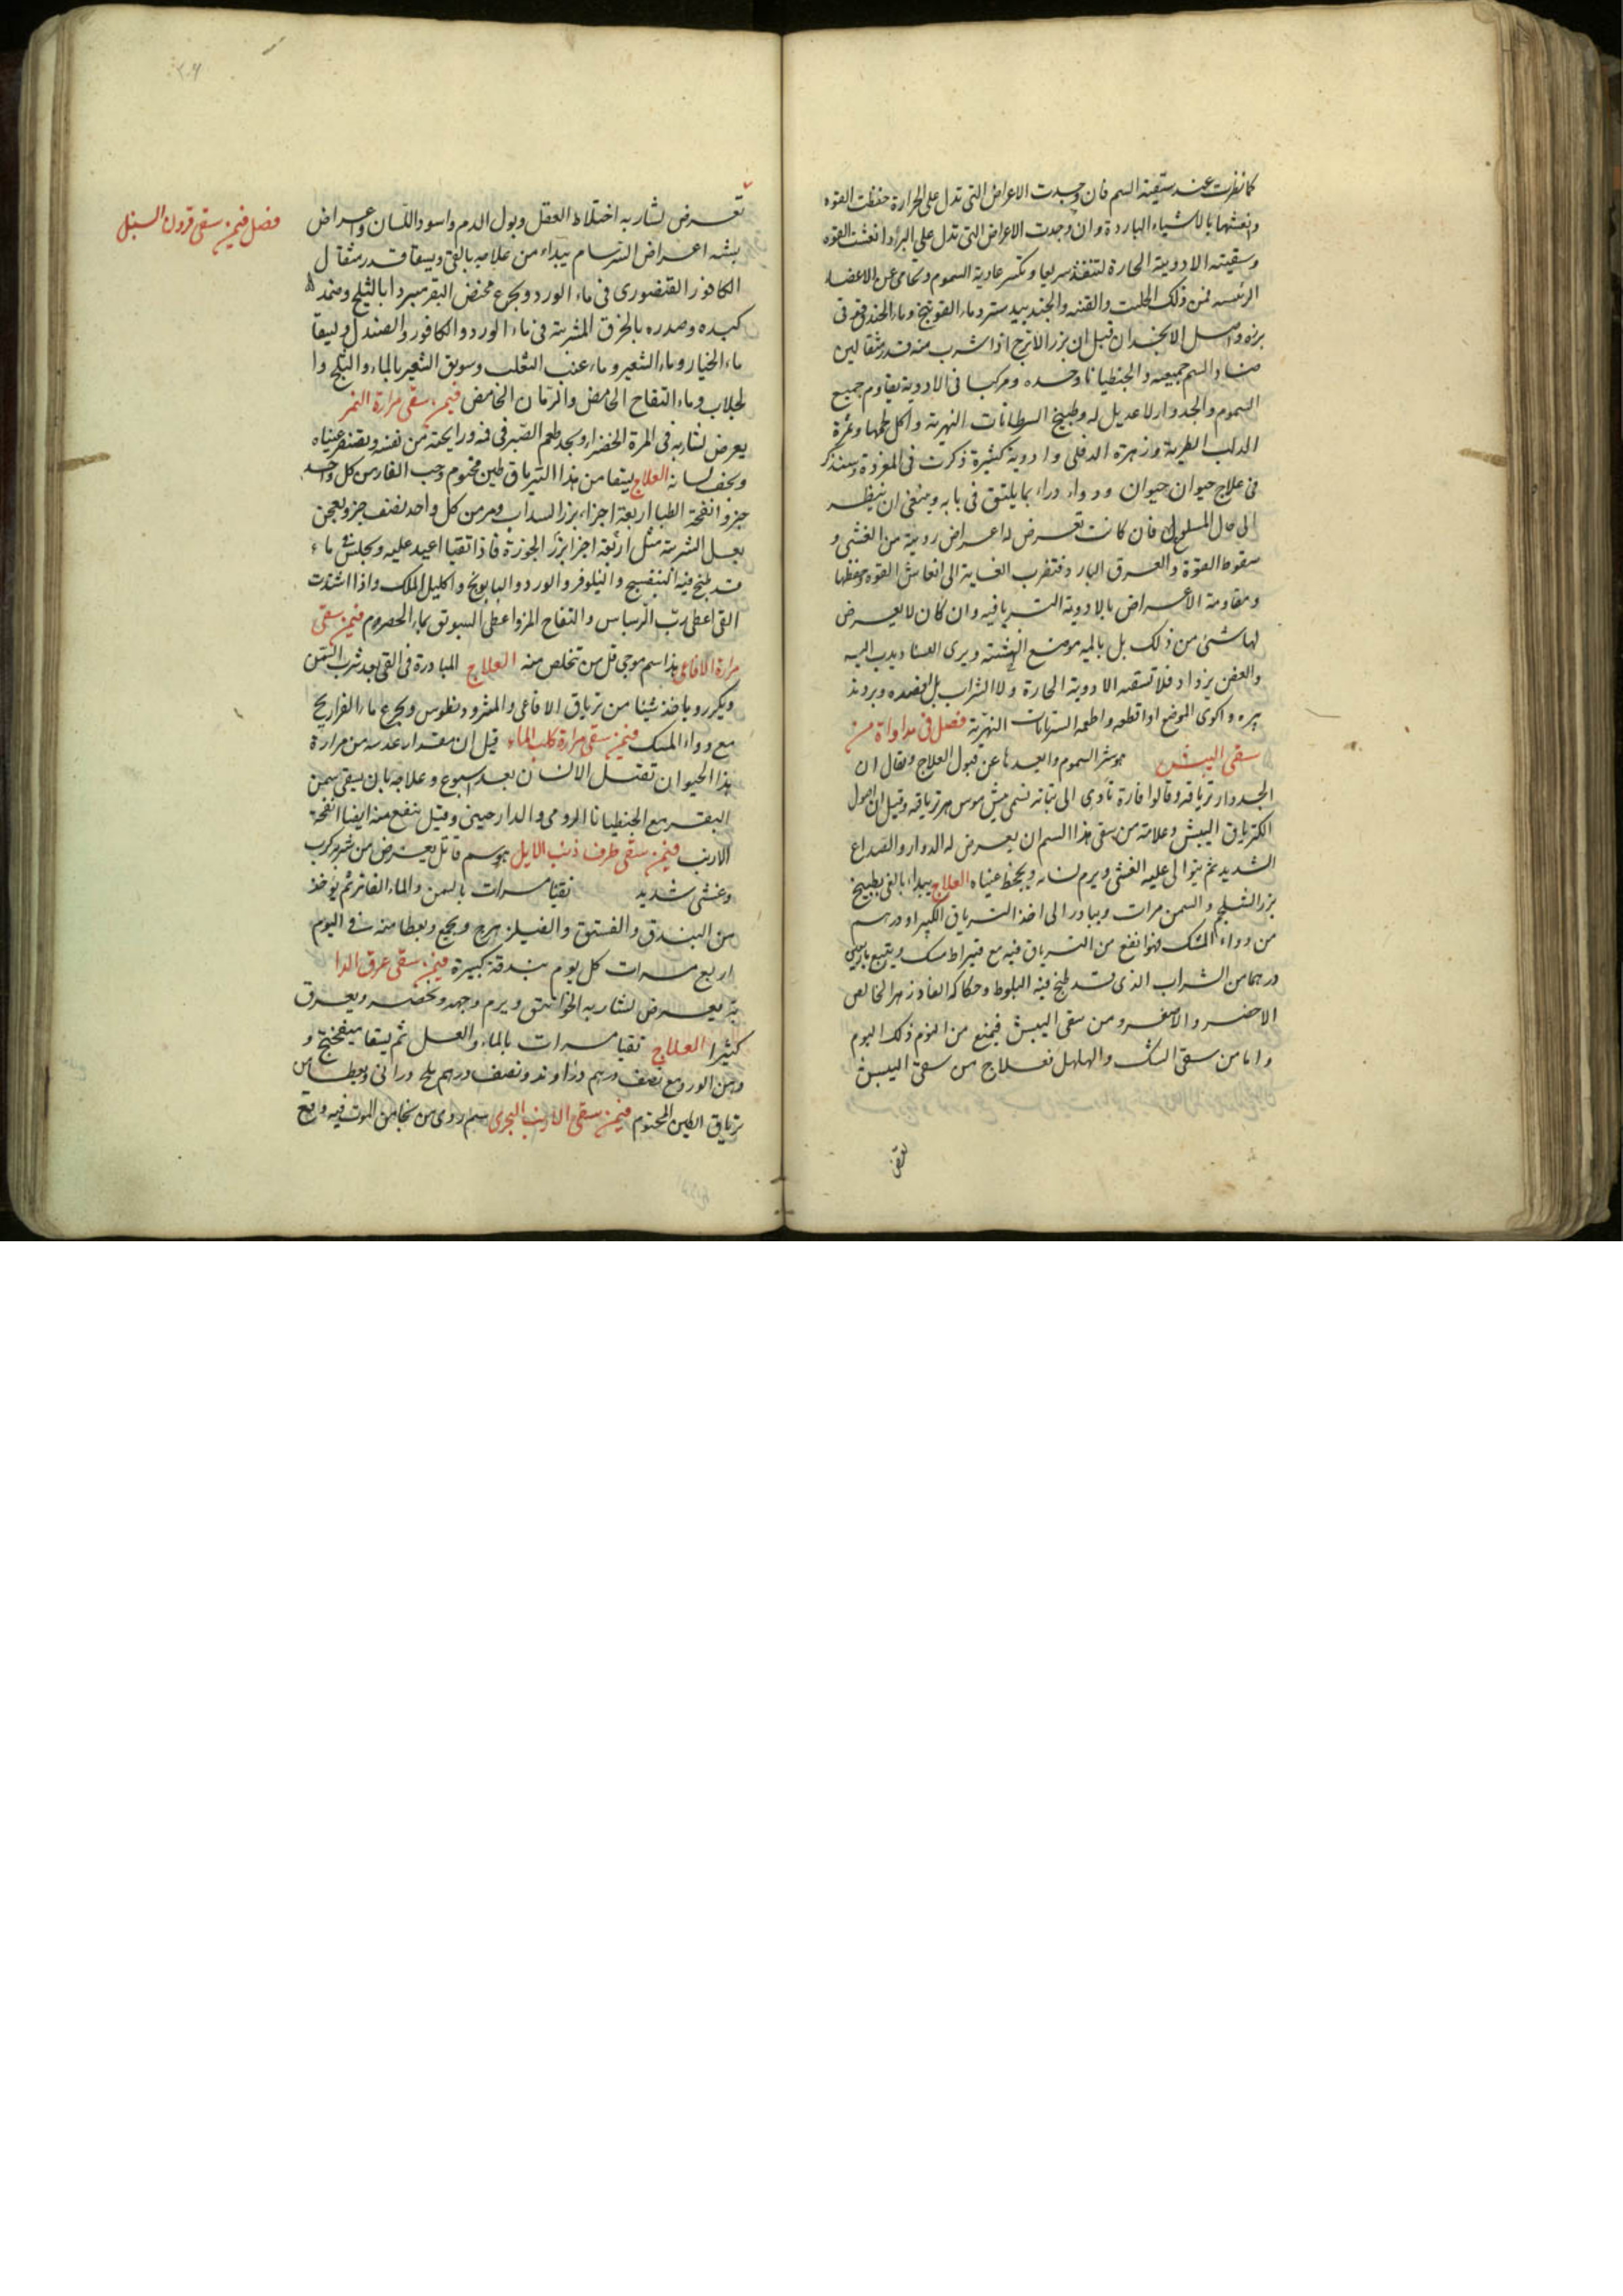 كما نظرت عند سقيته السم فان وجدت الاعراض التى تدل على الحرارة حفظت القوه
وانعشتها بالاشياء الباردة وان وجدت الاعراض التى تدل على البرد انعشت القوه
وسقيته الادوية الحارة لتنفذ سريعا وتكسر عادية السموم وتحامى عن الاعضاء
الرئيسه فمن ذلك الحلتيت والقنه والجندبيدستر وماء الفوتنج وماء الحندقوقى
بزره واصل الانجدان قيل ان بزر الاترج اذا شرب منه قدر مثقالين
ضاد السم جميعه والجنطيانا وحده ومركبا فى الادوية يقاوم جميع
السموم والجدوار لا عديل له وطبيخ السرطانات النهرية واكل لحمها وثمرة
الدلب الطرية وزهرة الدفلى وادوية كثيرة ذكرت فى المفردة وسنذكر
فى علاج حيوان حيوان ودواء دواء بما يليق فى بابه وينبغى ان ينظر
الى حال الملسوع فان كانت تعرض له اعراض ردية من الغشى و
سقوط القوة والعرق البارد فتصرف الغاية الى انعاش القوه وحفظها
ومقاومة الاعراض بالادوية الترياقيه وان كان لا يعرض
لها شئ من ذلك بل يالميه موضع النهشته ويرى الفساد يدب اليه
والعفن يزداد فلا تسقه الادوية الحارة ولا الشراب بل افصده وبرد تد
بيره واكوى الموضع او اقطعه واطعمه السرطانات النهرية فصل فى مداواة من
سقى البيش هو شر السموم وابعدها عن قبول العلاج ويقال ان
الجدوار ترياقه وقالوا فارة تأوى الى نباته تسمى ميش موس هو ترياقه وقيل ان اصول
الكبر ترياق البيش وعلامة من سقى هذا السم ان يعرض له الدوار والصداع
الشديد ثم يتوالى عليه الغشى ويرم لسانه ويجحظ عيناه العلاج يبدأ بالقى بطبيخ
بزر الشلجم والسمن مرات ويبادر الى اخذ الترياق الكبير او درهم
من دواء المسك فهو انفع من الترياق فيه مع قيراط مسك ويتبع باربعين
درهما من الشراب الذى قد طبخ فيه البلوط وحكاكه الفادزهر الخالص
الاخضر والاصفر ومن سقى البيش فيمنع من النوم ذلك اليوم
واما من سقى الشك والهلهل فعلاج من سقى البيش
فصل فيمن سقى قرون السنبل
تعرض لشاربه اختلاط العقل وبول الدم واسوداد اللسان واعراض
يشبه اعراض السرسام يبداء من علاجه بالقى ويسقا قدر مثقال
الكافور القنصورى فى ماء الورد ويجرع مخيض البقر مبردا بالثلج وضمد
كبده وصدره بالخرق المشربة فى ماء الورد والكافور والصندل وليسقا
ماء الخيار وماء الشعير وماء عنب الثعلب وسويق الشعير بالماء والثلج وا
لجلاب وماء التفاح الحامض والرمان الحامض فيمن سقى مرارة النمر
يعرض لشاربه فى المرة الخضراء ويجد طعم الصبر فى فيه ورايحته من نفسه ويصفر عيناه
ويجف لسانه العلاج يسقا من هذا الترياق طين مختوم وحب الغار من كل واحد
جزو انفحة الظبا اربعة اجزاء بزر السداب ومر من كل واحد نصف جزو يعجن
بعسل الشربة مثل اربعة اجزا بزر الجوزة فاذا تقيا اعيد عليه ويجلس فى ماء
قد طبخ فيه البنفسج والنيلوفر والورد والبابونج واكليل الملك واذا اشتدت
القى اعطى رب الريباس والتفاح المز واعطى السويق بماء الحصرم فيمن سقى
مرارة الافاعى هذا سم موجى قل من تخلص منه العلاج المبادرة فى القى بعد شرب السمن
ويكرر وياخذ شيئا من ترياق الافاعى والمثروديطوس ويجرع ماء الفراريج
مع دواء المسك فيمن سقى مرارة كلب الماء قيل ان مقدار عدسه من مرارة
هذا الحيوان تقتل الانسان بعد اسبوع وعلاجه بان يسقى سمن
البقر مع الجنطيانا الرومى والدارصينى وقيل ينفع منه ايضا انفحة
الارنب فيمن سقى طرف ذنب الايل هو سم قاتل يعرض من شربه كرب
وغشى شديد تقيا مرات بالسمن والماء الفاتر ثم يوخذ
من البندق والفستق والفيلزهرج ويجمع ويعطا منه فى اليوم
اربع مرات كل يوم بندقة كبيرة فيمن سقى عرق الدا
بة يعرض لشاربه الخوانيق ويرم وجهه ويخضر ويعرق
كثيرا العلاج تقيا مرات بالماء والعسل ثم يسقا ميفختج و
دهن الورد مع نصف درهم دراوند ونصف درهم ملح درانى ويعطا من
ترياق الطين المختوم فيمن سقى الارنب البحرى سم ردى من نجا من الموت فيه واقع